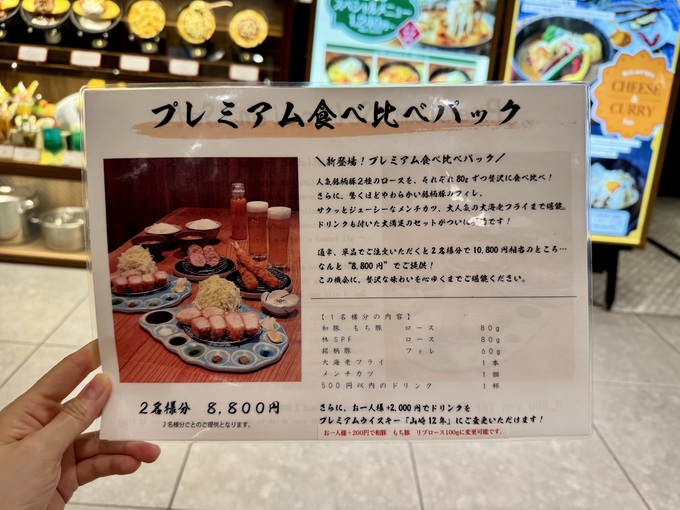 プレミアム食べ比べパック
＼新登場！プレミアム食べ比べパック／
人気銘柄豚2種のロースを、それぞれ80gずつ贅沢に食べ比べ！
さらに、驚くほどやわらかい銘柄豚のフィレ、
サクッとジューシーなメンチカツ、大人気の大海老フライまで堪能。
ドリンクも付いた大満足のセットがついに です！
通常、単品でご注文いただくと2名様分で10,800円相当のところ…
なんと"8,800円"でご提供！
この機会に、贅沢な味わいを心ゆくまでご堪能ください。
【1名様分の内容】
和豚 もち豚 ロース 80g
林SPF ロース 80g
銘柄豚 フィレ 60g
大海老フライ 1本
メンチカツ 1個
500円以内のドリンク 1杯
2名様分 8,800円
2名様分ごとのご提供となります。
さらに、お一人様+2,000円でドリンクを
プレミアムウイスキー「山崎12年」にご変更いただけます！
お一人様+200円で和豚 もち豚 リブロース100gに変更可能です。
スペシャルメニュー
CHEESE
CURRY